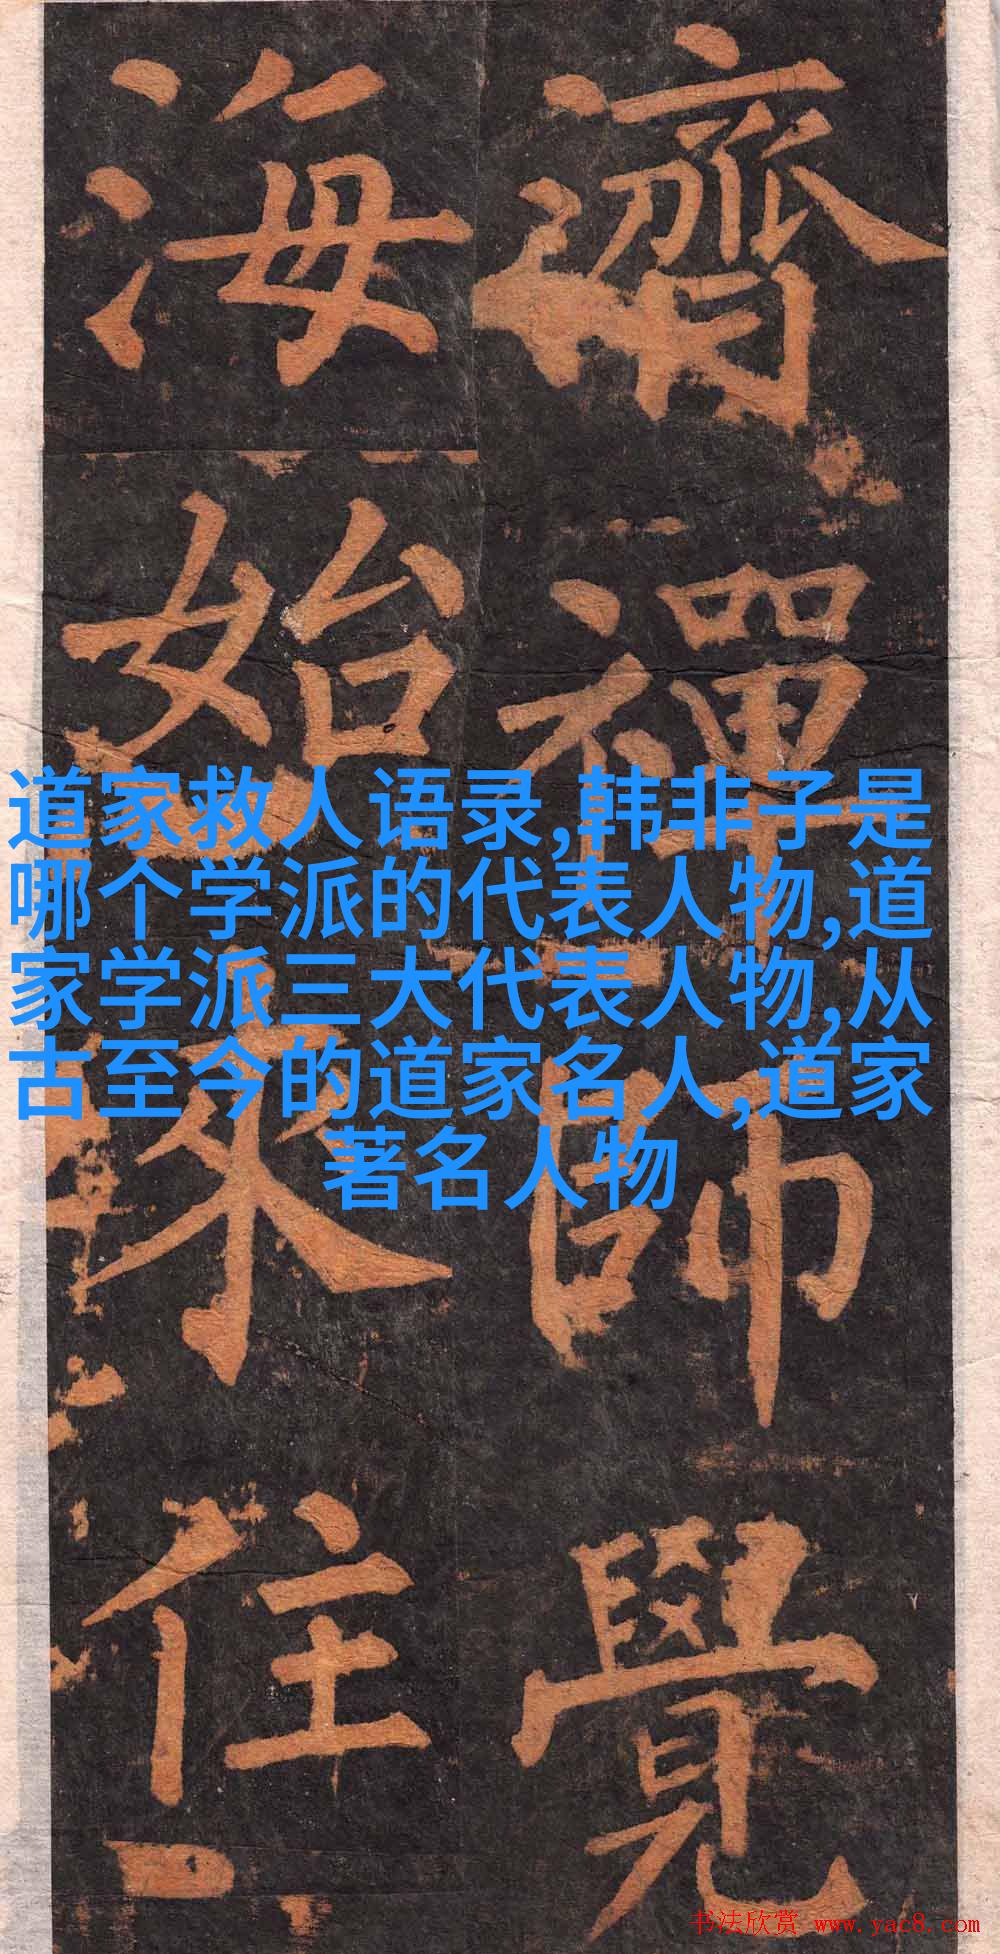 濟禪師覺
海始來住
道家救人语录,韩非子是
哪个学派的代表人物,道
家学派三大代表人物,从
古至今的道家名人,道家
著名人物
书法欣赏 www.yac8.com